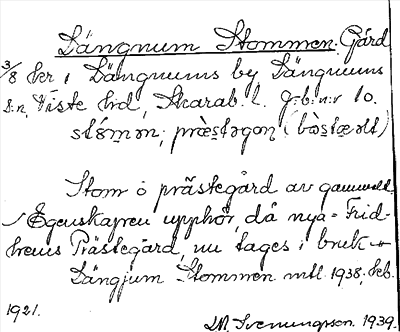 Längnum Stommen. Gård
3/8 kr i Längnums by Längnums
s:n, Viste hd, Skarab. l. g:b:n:r 10.
stóm̥ən; præstəgon (bòstælt)
Stom o prästegård av gammalt
Egenskapen upphör, då nya Frid-
hems Prästegård, nu tages i bruk
Längjum Stommen mtl 1938, keb.
1921.
M. Svenungsson. 1939.